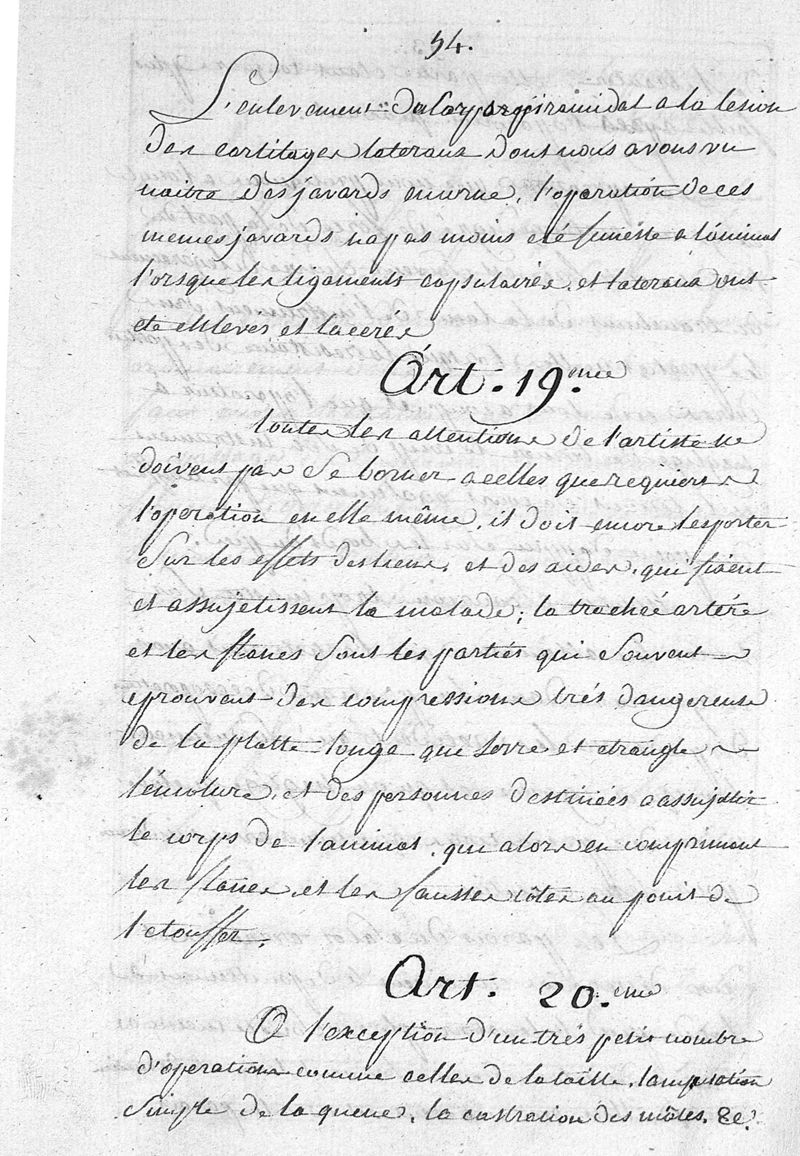 54.
L'enlevement du corps piramidal a la lesion
des cartilages lateraux dont nous avons vu
naitre des javards encorné, l'operation de ces
memes javards n'a pas moins été funéste a l'animal
l'orsque les ligaments capsulaires, et lateraux ont
eté enlevés et lacerés
Art. 19.eme
toutes les attentions de l'artiste ne
doivent pas se borner a celles que requiert
l'operation en elle même, il doit encore les porter
Sur les effets des liens, et des aides, qui fixent
et assujetissent le malade; la trachée artére
et les flancs Sont les partiés qui Souvent
eprouvent des compressions trés dangereuse
de la platte longe qui serre et etrangle
l'encolure, et des personnes destinées a assujettir
le corps de l'animal, qui alors en comprimant
les flancs, et les fausses côtes au point de
l'etouffer.
Art. 20.eme
A l'exception d'un trés petit nombre
d'operations comme celles de la taille, l'amputation
Simple de la queue, la castration des mâles, &c.